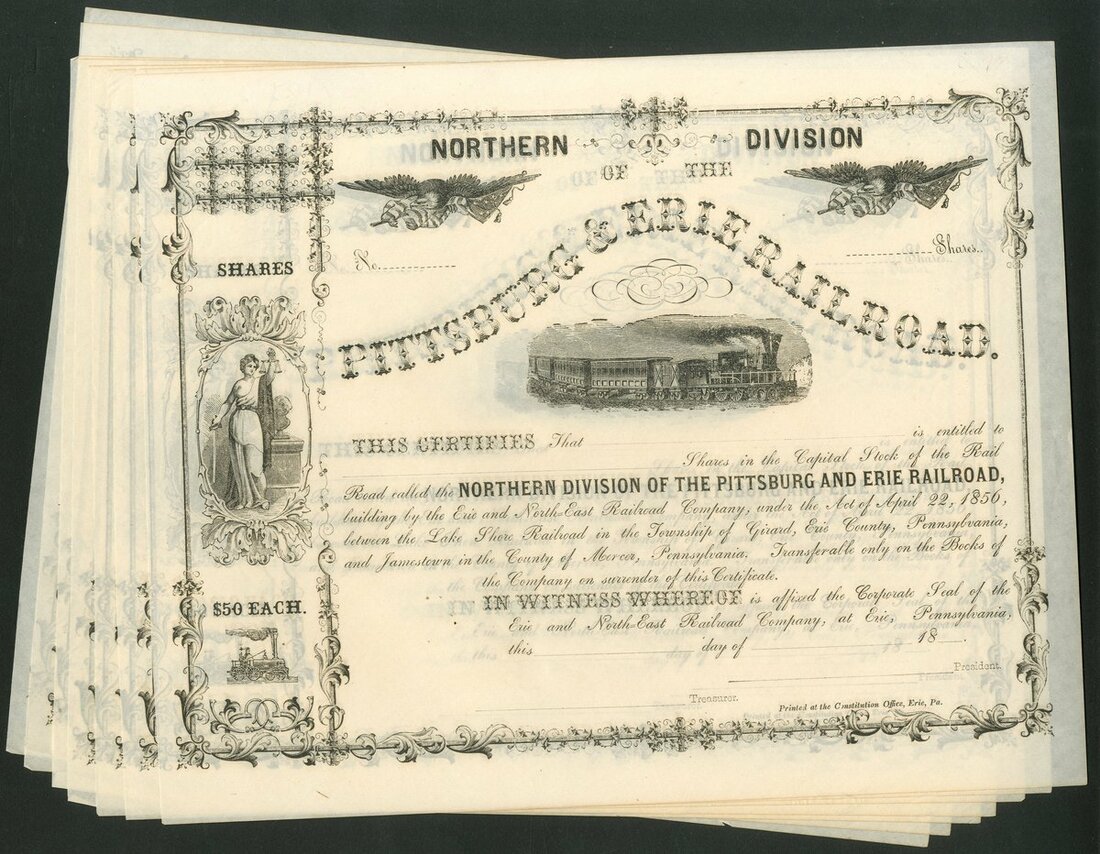 NORTHERN DIVISION
OF THE
PITTSBURG & ERIE RAILROAD.
No.
Shares.
SHARES
$50 EACH.
THIS CERTIFIES That is entitled to
Shares in the Capital Stock of the Rail
Road called the NORTHERN DIVISION OF THE PITTSBURG AND ERIE RAILROAD,
building by the Erie and North-East Railroad Company, under the Act of April 22, 1856,
between the Lake Shore Railroad in the Township of Girard, Erie County, Pennsylvania,
and Jamestown in the County of Mercer, Pennsylvania. Transferable only on the Books of
the Company on surrender of this Certificate.
IN WITNESS WHEREOF is affixed the Corporate Seal of the
Erie and North-East Railroad Company, at Erie, Pennsylvania,
this day of 18
President.
Treasurer.
Printed at the Constitution Office, Erie, Pa.